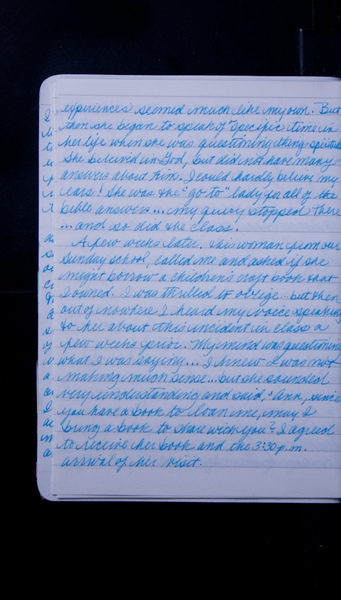 experiences seemed much like my own. But
then she began to speak of "specific" time in
her life when she was questioning things spiritual.
She believed in God, but did not have many
answers about Him. I could hardly believe my
ears! She was the "go to" lady for all of the
bible answers... my query stopped there
...and so did the class.
A few weeks later, this woman from our
Sunday school, called me and asked if she
might borrow a children's craft book that
I owned. I was thrilled to oblige. but then
out of nowhere I heard my voice speaking
to her about this incident in class a
few weeks prior. My mind was questioning
what I was saying... I knew I was not
making much sense... but she sounded
very understanding and said: Ann, since
you have a book to loan me, may I
bring a book to share with you? I agreed
to receive her book and the 3:30 p.m.
arrival of her visit.